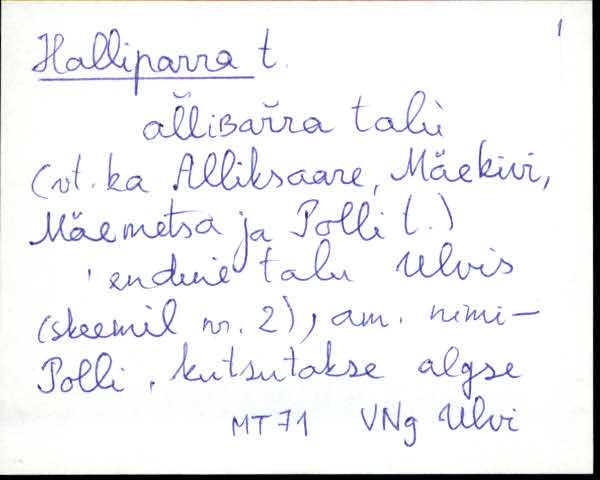 1
Halliparra t.
al̆l̆iʙar̆ra talù
(vt. ka Alliksaare, Mäekivi,
Mäemetsa ja Polli t.)
endine talu Ulvis
(skeemil nr. 2), am. nimi-
Polli, kutsutakse algse
MT 71 VNg Ulvi